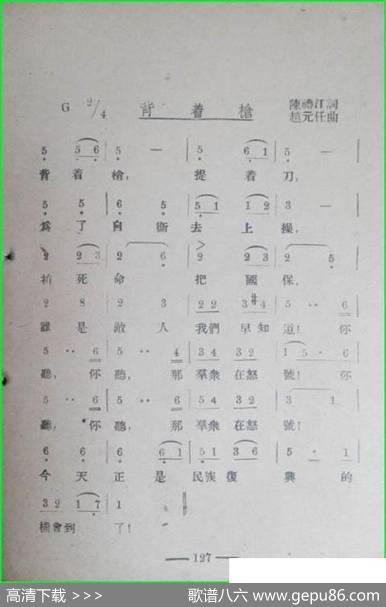 G 2/4 背着槍 陳禮江詞
趙元任曲
5 5 6 5 — 5 6 1 5 —
背 着 槍, 提 着 刀,
5 5 6 5 5 1 1 2 3 —
爲 了 自 衛 去 上 操,
2 2 3 2 6 2 2 3 2 5
拚 死 命 把 國 保,
2 3 2 3 2 2 3 4 5 · · 6
誰 是 敵 人 我們 早知 道! 你
5 · · 6 5 · · 4 3 4 3 2 1 5 · 6
聽, 你 聽, 那 羣衆 在怒 號! 你
5 · · 6 5 · · 2 3 4 3 2 3 1
聽, 你 聽, 那 羣衆 在怒 號!
6 6 6 6 1 5 1 3 6 5 · 1
今 天 正 是 民族 復 興 的
3 2 1 7 1
機會 到 了!
— 127 —
高清下载 >>> 歌谱八六 © www.gepu86.com